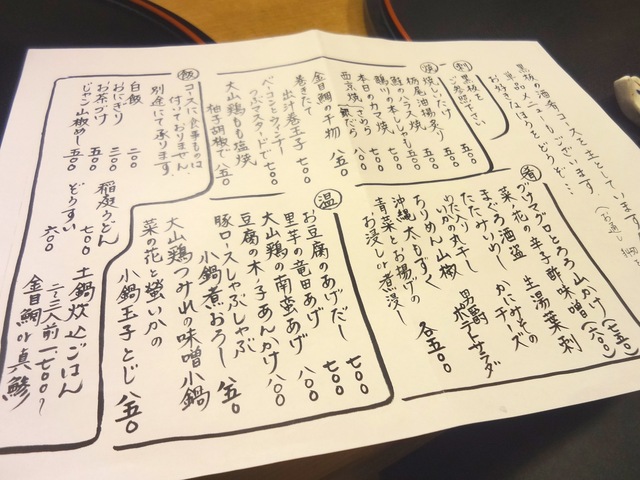 黒板の酒肴コースを主としています
単品メニューもございます
お好きなほうをどうぞ…
刺
黒板を
ご参照下さい
焼
焼しいたけ 五〇〇
栃尾油揚炙り 七〇〇
鮭のハラス焼
鶴川の本ししゃも
本日のカマ焼
西京焼
金目鯛の干物 八五〇
巻きたて
出汁巻玉子 七〇〇
ベーコンとウィンナー
つぶマスタードで 七〇〇
大山鶏もも塩焼
柚子胡椒で 八五〇
飯
コースに食事ものは
付いておりません
別途にて承ります
白飯 二〇〇
おにぎり 三〇〇
お茶づけ 五〇〇
じゃン山椒めし 五〇〇
稲庭うどん 七〇〇
ぞうすい 六〇〇
土鍋炊込ごはん
二〜三人前 一、七〇〇〜
金目鯛 or 真鯵
肴
づけマグロとろろ山かけ (七五〇)
菜の花の辛子酢味噌 (六〇〇)
まぐろ酒盗 生湯葉刺
たたみいわし かにみその
チーズ
わた入り丸干し
いか
ちりめん山椒 男爵
ポテトサラダ
沖縄太もずく
青菜とお揚げの
お浸し 煮浸し 各五〇〇
温
お豆腐のあげだし 七〇〇
里芋の竜田あげ 七〇〇
大山鶏の南蛮あげ 八〇〇
豆腐の木ノ子あんかけ 八〇〇
豚ロースしゃぶしゃぶ
小鍋煮おろし 八五〇
大山鶏つみれの味噌小鍋
菜の花と蛍いかの
小鍋玉子とじ 八五〇